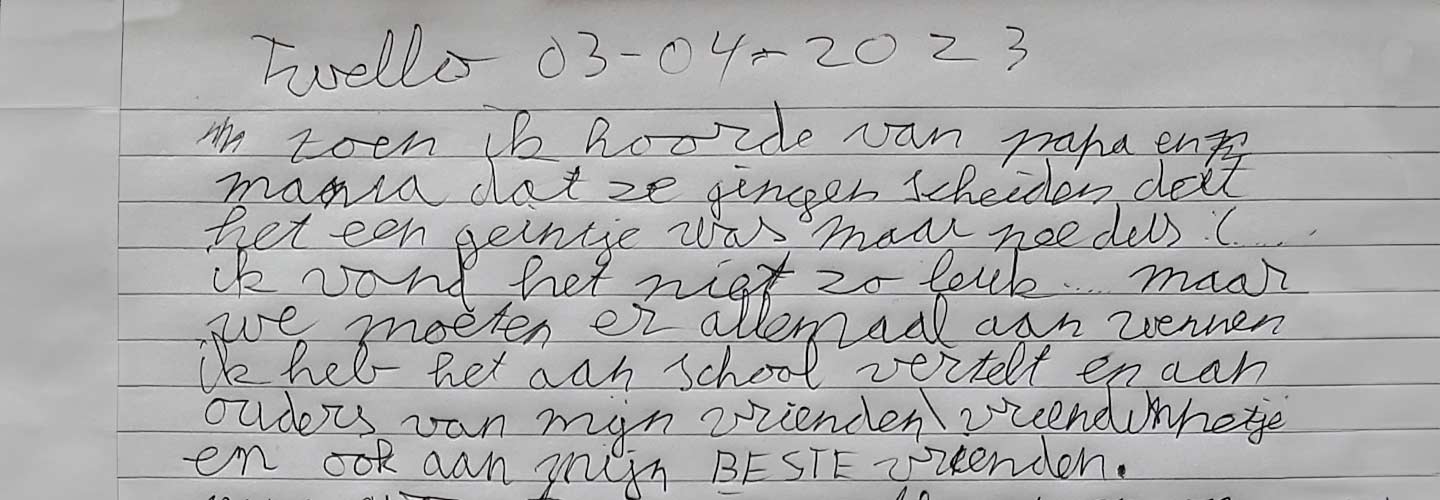 Twello 03-04-2023
toen ik hoorde van papa en
mama dat ze gingen scheiden dat
het een geintje was maar nee dus :(.....
ik vond het niet zo leuk.... maar
we moeten er allemaal aan wennen
ik heb het aan school vertelt en aan
ouders van mijn vrienden\vreendinnetje
en ook aan mijn BESTE vrienden.